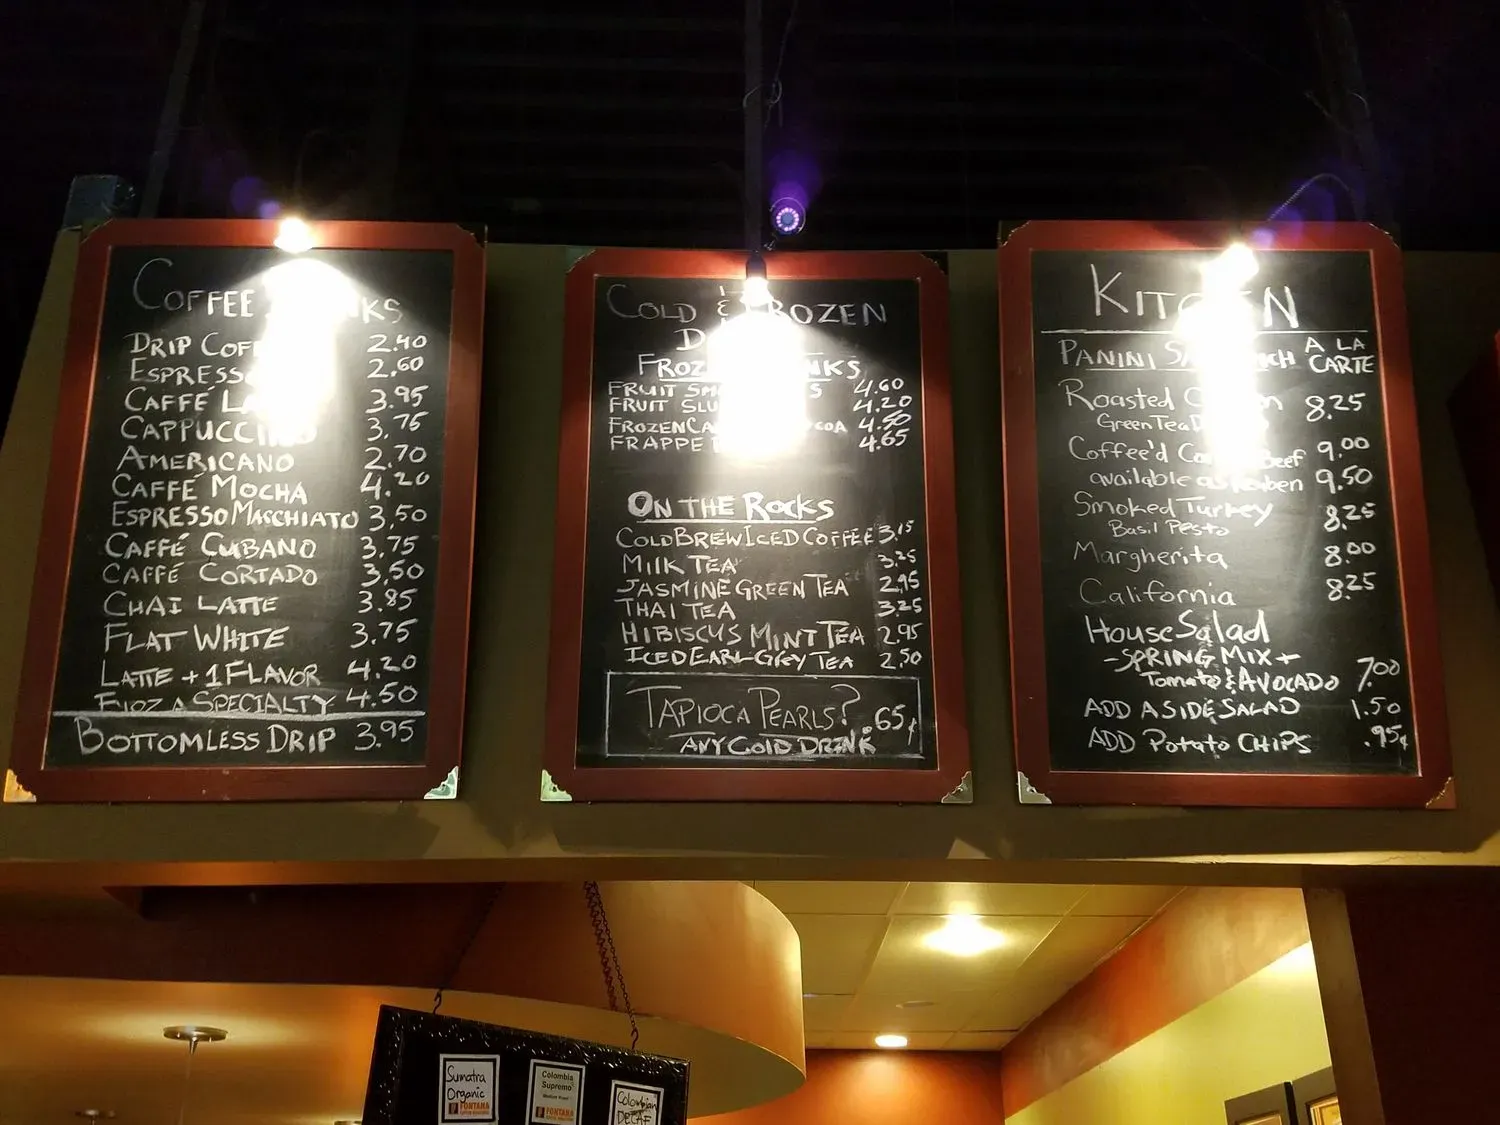 COFFEE
DRIP 2.40
ESPRESSO 2.60
CAFFÉ 3.95
CAPPUCCINO 3.75
AMERICANO 2.70
CAFFÉ MOCHA 4.20
ESPRESSO MACCHIATO 3.50
CAFFÉ CUBANO 3.75
CAFFÉ CORTADO 3.50
CHAI LATTE 3.85
FLAT WHITE 3.75
LATTE + 1 FLAVOR 4.20
SPECIALTY 4.50
BOTTOMLESS DRIP 3.95
COLD & FROZEN
FRUIT 4.60
FRUIT 4.20
FROZEN 4.50
FRAPPE 4.65
ON THE ROCKS
COLD BREW ICED COFFEE 3.15
MILK TEA 3.25
JASMINE GREEN TEA 2.95
THAI TEA 3.25
HIBISCUS MINT TEA 2.95
ICED EARL GREY TEA 2.50
TAPIOCA PEARLS? .65¢
ANY COLD DRINK
KITCHEN
PANINI SANDWICH A LA
CARTE
Roasted 8.25
Green Tea
Coffee'd Beef 9.00
available as Reuben 9.50
Smoked Turkey 8.25
Basil Pesto
Margherita 8.00
California 8.25
House Salad
- SPRING MIX +
Tomato & AVOCADO 7.00
ADD A SIDE SALAD 1.50
ADD Potato CHIPS .95¢
Sumatra
Organic
FONTANA
Colombia
Supremo
FONTANA
Colombian
DECAF